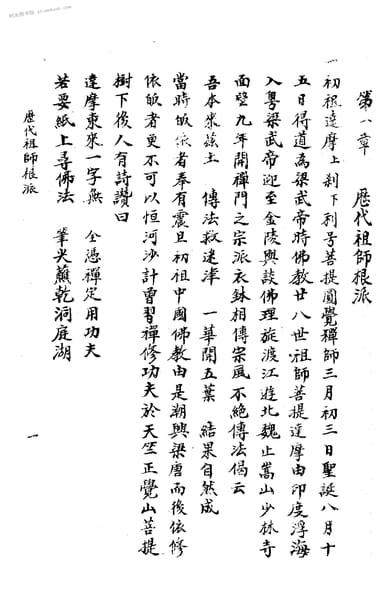 第八章　歷代祖師根派
一初祖達摩上刹下利号菩提圓覺禪師三月初三日聖誕八月十
五日得道為梁武帝時佛教廿八世祖師菩提達摩由印度浮海
入粵梁武帝迎至金陵與談佛理旋渡江遊北魏止嵩山少林寺
面壁九年開禪門之宗派衣鉢相傳宗風不絕傳法偈云
吾本來茲土　傳法救迷津　一華開五葉　結果自然成
當時皈依者奉有震旦初祖中國佛教由是潮興梁唐而後依修
依皈者更不可以恒河沙計曾習禪修功夫於天竺正覺山菩提
樹下後人有詩讚曰
達摩東來一字無　全憑禪定用功夫
若要紙上尋佛法　筆尖蘸乾洞庭湖
歷代祖師根派
一